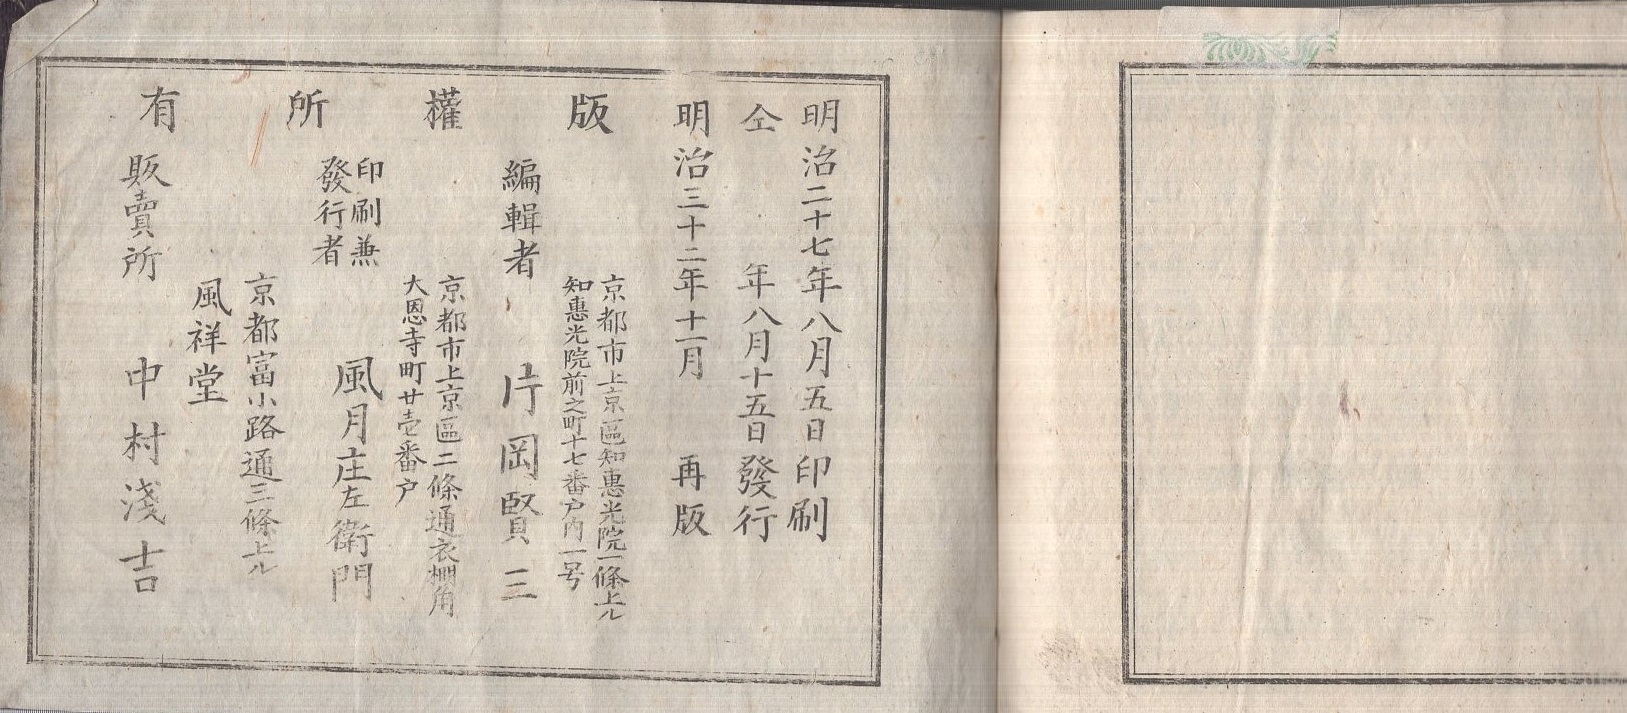 明治二十七年八月五日印刷
仝　年八月十五日發行
明治三十二年十一月　再版
版權所有
京都市上京區知惠光院一條上ル
知惠光院前之町十七番戸内一号
編輯者　片岡賢三
京都市上京區二條通衣棚角
大恩寺町廿壱番戸
印刷兼
發行者　風月庄左衛門
京都富小路通三條上ル
風祥堂
販賣所　中村淺吉